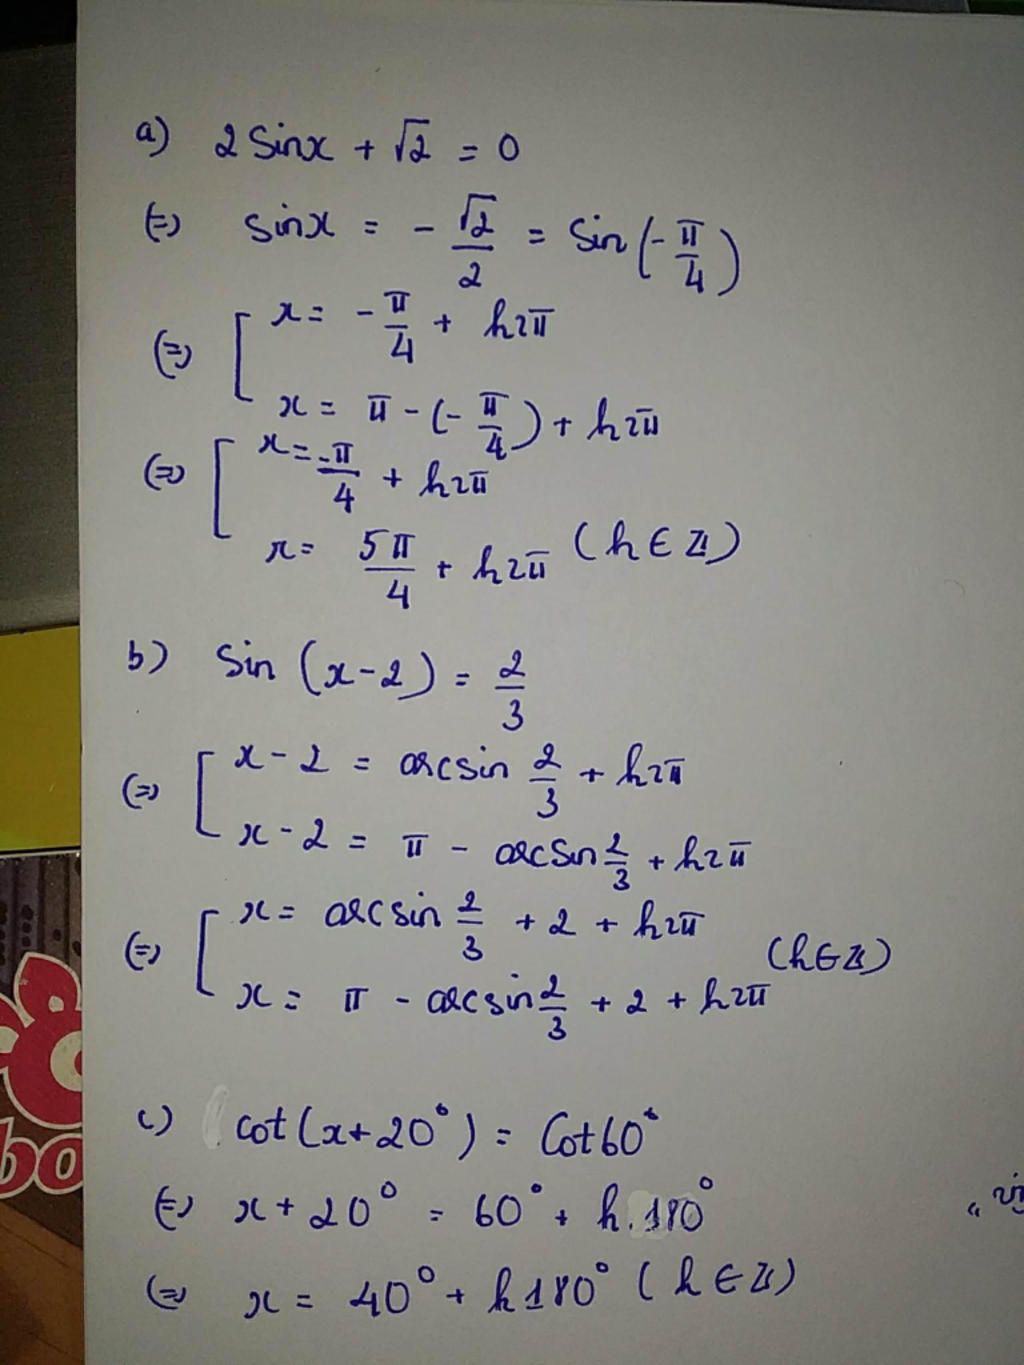 a) 2 Sinx + √2 = 0
(=) sinx = - √2/2 = Sin(-π/4)
(=) [ x = -π/4 + k2π
x = π - (-π/4) + k2π
(=) [ x = -π/4 + k2π
x = 5π/4 + k2π (k ∈ Z)
b) Sin (x-2) = 2/3
(=) [ x - 2 = arcsin 2/3 + k2π
x - 2 = π - arcsin 2/3 + k2π
(=) [ x = arcsin 2/3 + 2 + k2π
x = π - arcsin 2/3 + 2 + k2π (k ∈ Z)
c) cot (x + 20°) = Cot 60°
(=) x + 20° = 60° + k.180°
(=) x = 40° + k180° (k ∈ Z)
bo